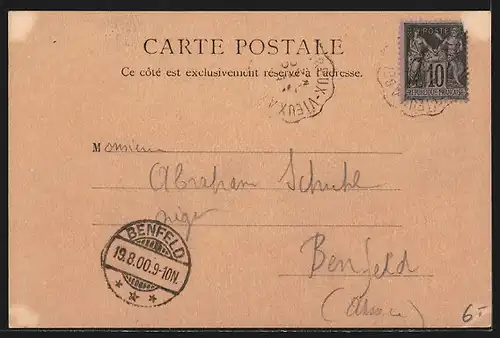 CARTE POSTALE
Ce côté est exclusivement réservé à l'adresse.
10
RÉPUBLIQUE FRANÇAISE
Monsieur
Abraham
Benfeld
(Alsace)
BENFELD
19.8.00.9-10N.
6.-